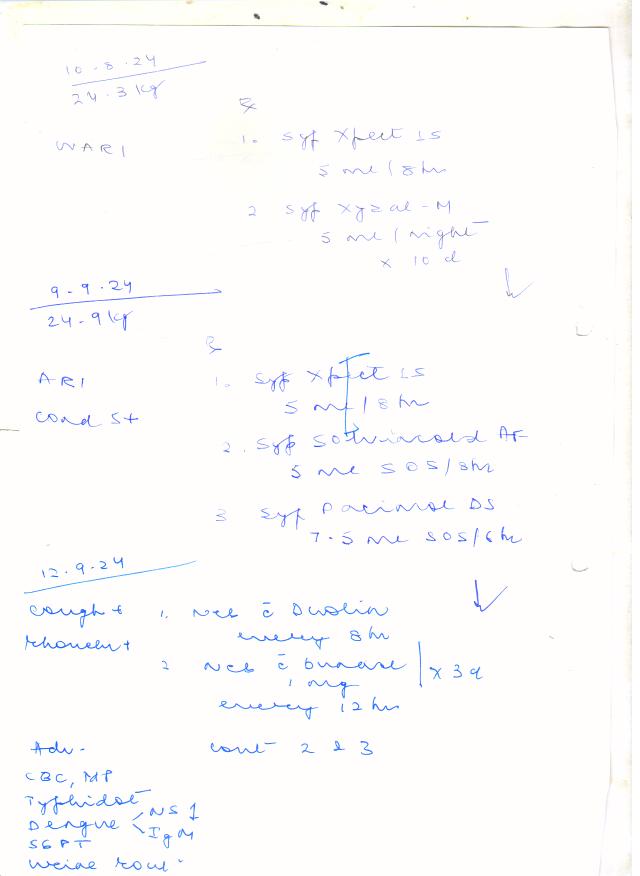 10.8.24
24.3 kg
Rx
WARI
1. Syp Xpect LS
5 ml / 8 hr
2 Syp Xyzal-M
5 ml / night
x 10 d
9.9.24
24.9 kg
Rx
ARI
1. Syp Xpect LS
5 ml / 8 hr
Cond S+
2. Syp Solvincold AF
5 ml SOS/8hr
3 Syp Pacimol DS
7.5 ml SOS/6 hr
12.9.24
Cough + 1. Neb c̄ Duolin
every 8 hr
Rhonchi +
2 Neb c̄ Budnase
1 mg
every 12 hr
x 3 d
Adv - cont 2 & 3
CBC, MP
Typhidot
Dengue < NS 1
IgM
SGPT
Urine rout.